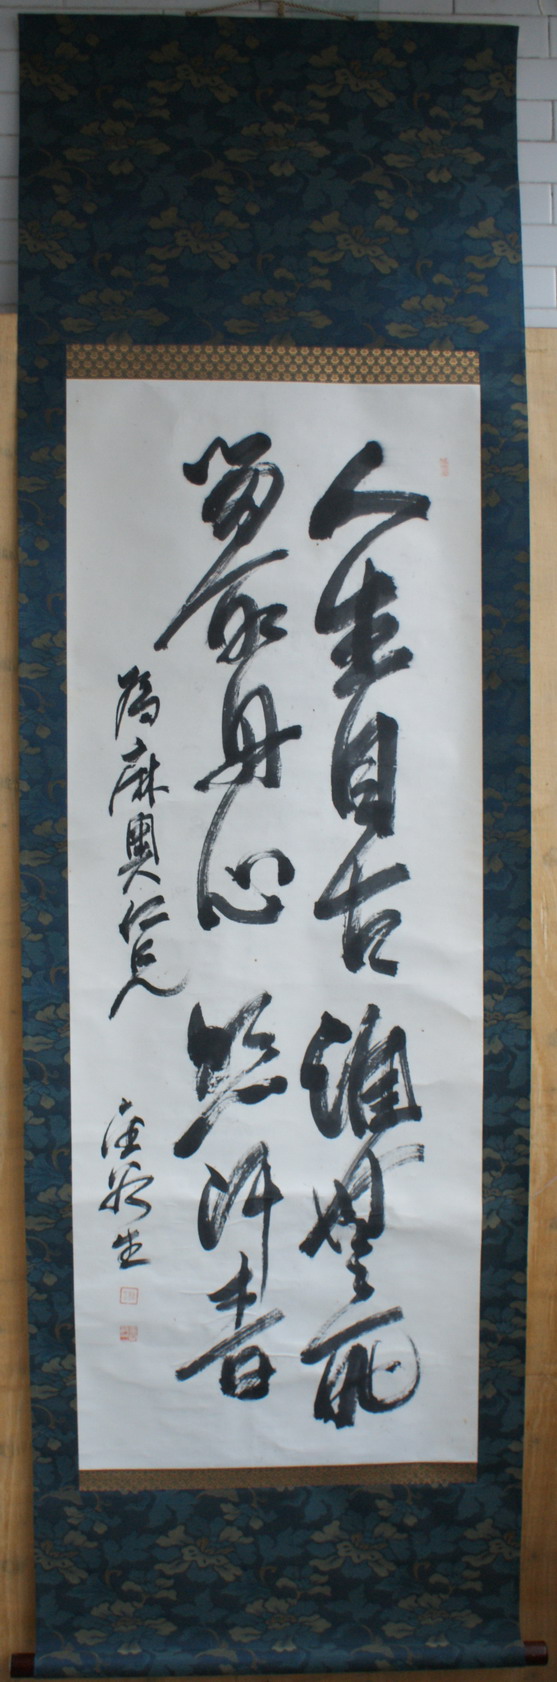 人生自古誰無死
留取丹心照汗青
為麻奧仁兄
生